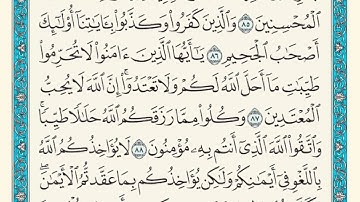 ٱلْمُحْسِنِينَ ٨٥ وَٱلَّذِينَ كَفَرُوا۟ وَكَذَّبُوا۟ بِـَٔايَـٰتِنَآ أُو۟لَـٰٓئِكَ
أَصْحَـٰبُ ٱلْجَحِيمِ ٨٦ يَـٰٓأَيُّهَا ٱلَّذِينَ ءَامَنُوا۟ لَا تُحَرِّمُوا۟
طَيِّبَـٰتِ مَآ أَحَلَّ ٱللَّهُ لَكُمْ وَلَا تَعْتَدُوٓا۟ ۚ إِنَّ ٱللَّهَ لَا يُحِبُّ
ٱلْمُعْتَدِينَ ٨٧ وَكُلُوا۟ مِمَّا رَزَقَكُمُ ٱللَّهُ حَلَـٰلًا طَيِّبًا ۚ
وَٱتَّقُوا۟ ٱللَّهَ ٱلَّذِىٓ أَنتُم بِهِۦ مُؤْمِنُونَ ٨٨ لَا يُؤَاخِذُكُمُ ٱللَّهُ
بِٱللَّغْوِ فِىٓ أَيْمَـٰنِكُمْ وَلَـٰكِن يُؤَاخِذُكُم بِمَا عَقَّدتُّمُ ٱلْأَيْمَـٰنَ ۖ